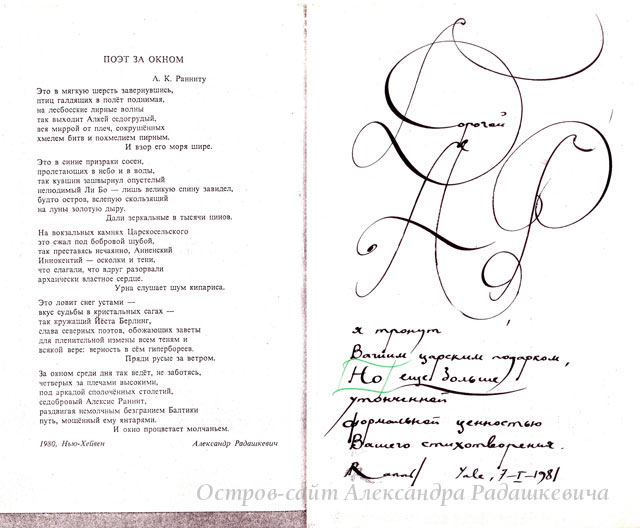 ПОЭТ ЗА ОКНОМ
А. К. Ранниту
Это в мягкую шерсть завернувшись,
птиц галдящих в полёт поднимая,
на лесбосские лирные волны
так выходит Алкей седогрудый,
вея миррой от плеч, сокрушённых
хмелем битв и похмелием пирным.
И взор его моря шире.
Это в синие призраки сосен,
пролетающих в небо и в воды,
так кувшин зашвырнул опустелый
нелюдимый Ли Бо — лишь великую спину завидел,
будто остров, вслепую скользящий
на луны золотую дыру.
Дали зеркальные в тысячи цинов.
На вокзальных камнях Царскосельского
это сжал под бобровой шубой,
так преставясь нечаянно, Анненский
Иннокентий — осколки и тени,
что слагали, что вдруг разорвали
архаически властное сердце.
Урна слушает шум кипариса.
Это ловит снег устами —
вкус судьбы в кристальных сагах —
так кружащий Йёста Берлинг,
слава северных поэтов, обожающих заветы
для пленительной измены всем теням и
всякой вере: верность в сём гипербореев.
Пряди русые за ветром.
За окном среди дня так ведёт, не заботясь,
четверых за плечами высокими,
под аркадой сплочённых столетий,
седобровый Алексис Раннит,
раздвигая немолчным безгранием Балтики
путь, мощённый ему янтарями.
И окно процветает молчаньем.
1980, Нью-Хейвен Александр Радашкевич
Дорогой
А Р
я тронут
Вашим царским подарком,
Но еще больше
утонченной
формальной ценностью
Вашего стихотворения.
Rannit Yale, 7-I-1981
Остров-сайт Александра Радашкевича